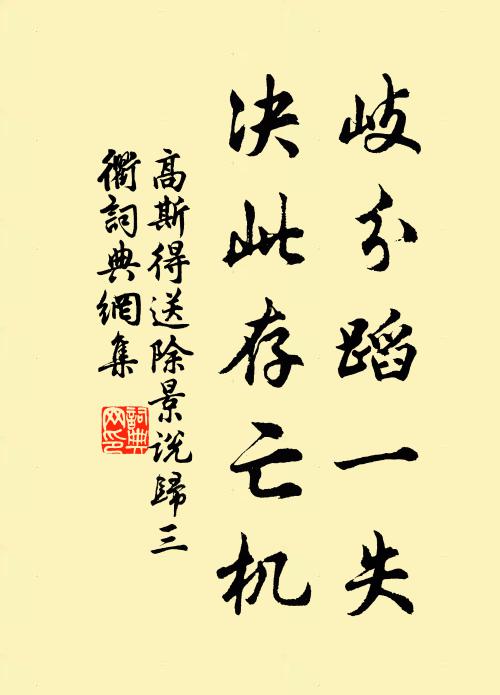 岐分蹈一失
决此存亡机
高斯得送除景说歸三
衢詞典網集
詞典网印